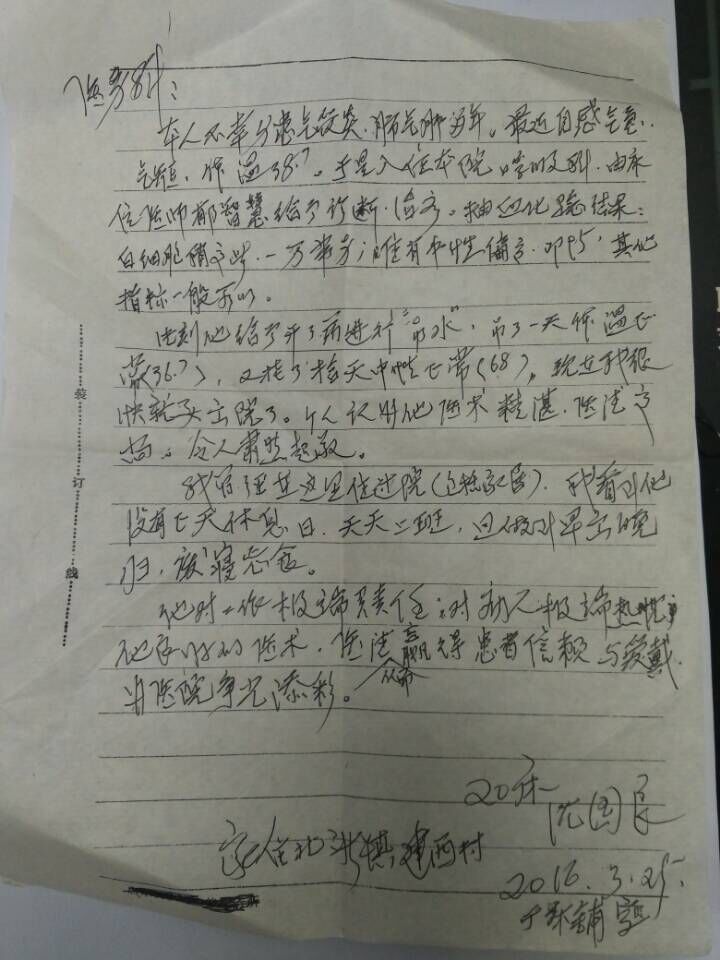 医务科:
本人不幸另患气管炎、肺气肿多年。最近自感气急、
气短,体温38.7。于是入住本院呼吸科。由床
位医师郁智慧给予诊断、治疗。抽血化验结果:
白细胞稍高些,一万零 唯有中性偏高,即95,其他
指标一般可以。
他给予开了药进行"吊水",吊了一天体温正
常(36.7),又挂了 天中性正常(68),现在我很
快就要出院了。个人认为他医术精湛,医德高
尚。令人肃然起敬。
我曾经在这里住过院(包括家属),我看到他
没有七天休息日,天天上班,早出晚
归,废寝忘食。
他对工作极端负责任;对病人极端热忱,
他良好的医术,医德赢得患者信赖与爱戴,
从而
为医院争光添彩。
20床
沈国良
家住北 镇,建西村
2016.3.25.
于 铺写
装
订
线